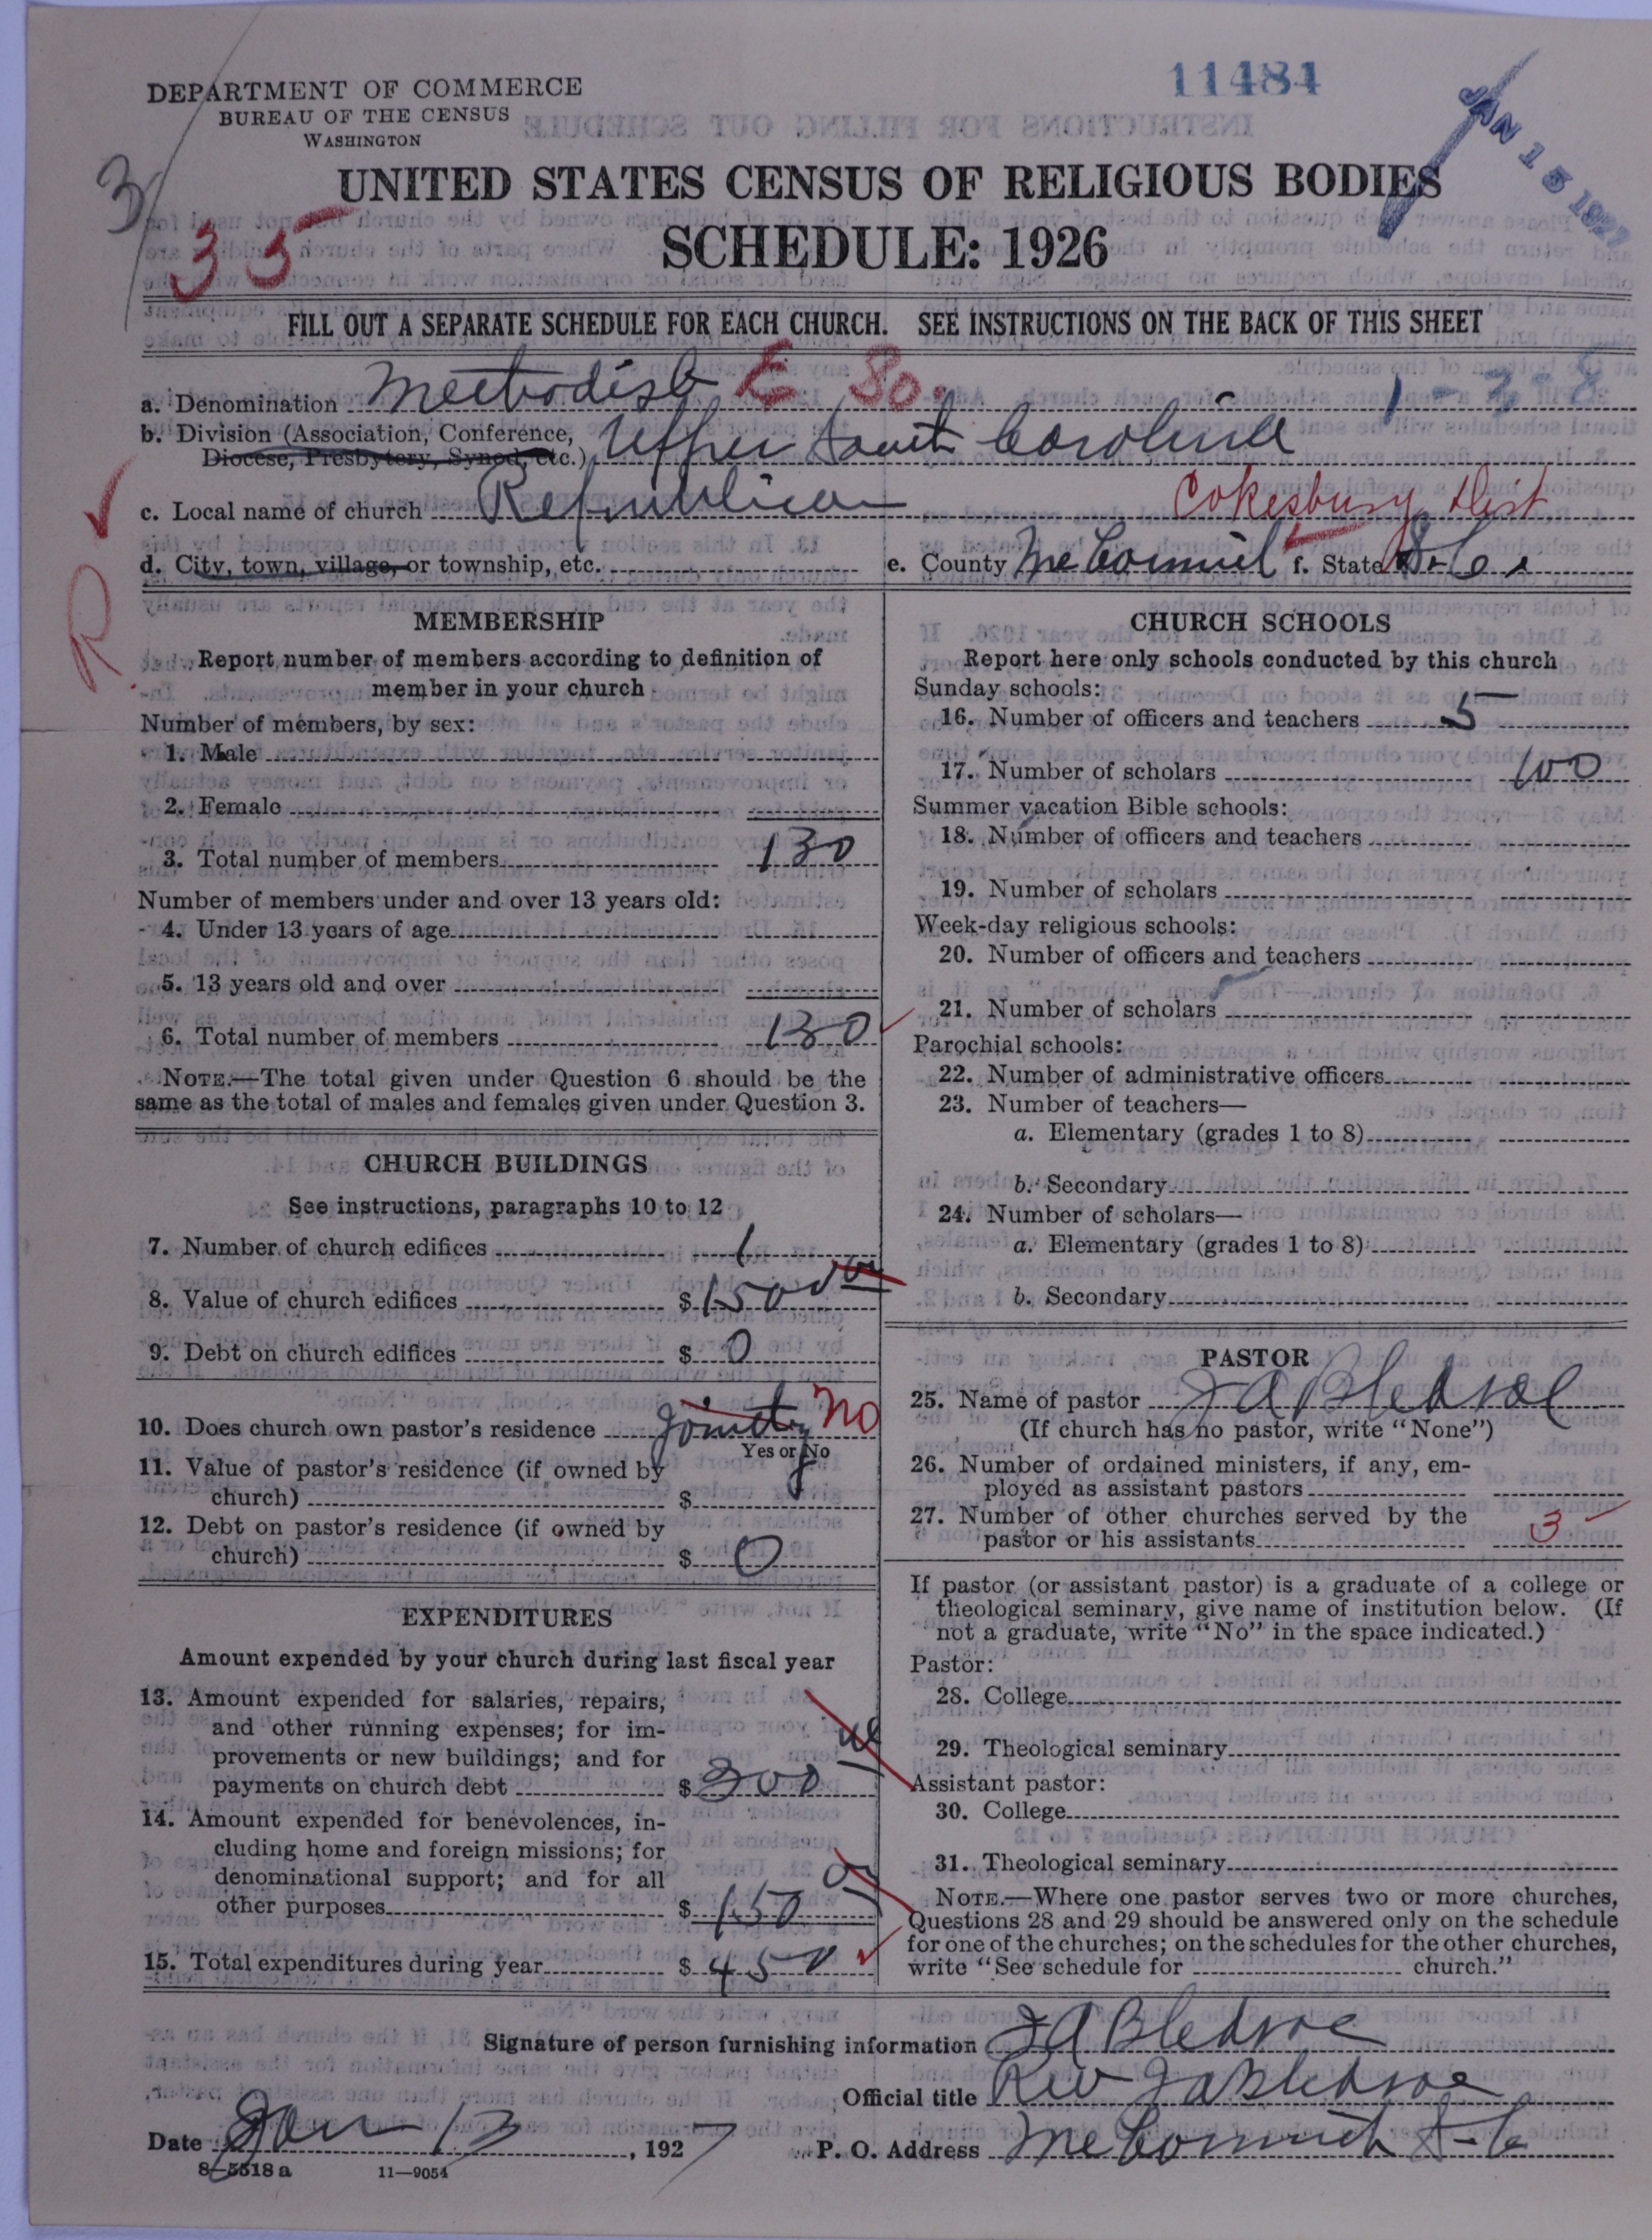 11484
JAN 15 1927
DEPARTMENT OF COMMERCE
BUREAU OF THE CENSUS
WASHINGTON
UNITED STATES CENSUS OF RELIGIOUS BODIES
SCHEDULE: 1926
3
35
FILL OUT A SEPARATE SCHEDULE FOR EACH CHURCH. SEE INSTRUCTIONS ON THE BACK OF THIS SHEET
a. Denomination Methodist E So. 1-3-8
b. Division (Association, Conference, Diocese, Presbytery, Synod, etc.) Upper South Carolina
c. Local name of church Republican Cokesbury Dist
d. City, town, village, or township, etc. e. County McCormick f. State S.C.
R
MEMBERSHIP
Report number of members according to definition of
member in your church
Number of members, by sex:
1. Male
2. Female
3. Total number of members 130
Number of members under and over 13 years old:
4. Under 13 years of age
5. 13 years old and over
6. Total number of members 130
NOTE.—The total given under Question 6 should be the
same as the total of males and females given under Question 3.
CHURCH BUILDINGS
See instructions, paragraphs 10 to 12
7. Number of church edifices 1
8. Value of church edifices $1500 00
9. Debt on church edifices $ 0
10. Does church own pastor's residence Jointly No
Yes or No
11. Value of pastor's residence (if owned by
church) $
12. Debt on pastor's residence (if owned by
church) $ 0
EXPENDITURES
Amount expended by your church during last fiscal year
13. Amount expended for salaries, repairs,
and other running expenses; for im-
provements or new buildings; and for
payments on church debt $ 300
14. Amount expended for benevolences, in-
cluding home and foreign missions; for
denominational support; and for all
other purposes $ 150
15. Total expenditures during year $ 450
CHURCH SCHOOLS
Report here only schools conducted by this church
Sunday schools:
16. Number of officers and teachers 5
17. Number of scholars 100
Summer vacation Bible schools:
18. Number of officers and teachers
19. Number of scholars
Week-day religious schools:
20. Number of officers and teachers
21. Number of scholars
Parochial schools:
22. Number of administrative officers
23. Number of teachers—
a. Elementary (grades 1 to 8)
b. Secondary
24. Number of scholars—
a. Elementary (grades 1 to 8)
b. Secondary
PASTOR
25. Name of pastor J A Bledsoe
(If church has no pastor, write "None")
26. Number of ordained ministers, if any, em-
ployed as assistant pastors
27. Number of other churches served by the
pastor or his assistants 3
If pastor (or assistant pastor) is a graduate of a college or
theological seminary, give name of institution below. (If
not a graduate, write "No" in the space indicated.)
Pastor:
28. College
29. Theological seminary
Assistant pastor:
30. College
31. Theological seminary
NOTE.—Where one pastor serves two or more churches,
Questions 28 and 29 should be answered only on the schedule
for one of the churches; on the schedules for the other churches,
write "See schedule for church."
Signature of person furnishing information J A Bledsoe
Official title Rev J A Bledsoe
Date Jan 13, 1927 P. O. Address McCormick S-C
8-5518 a 11-9054